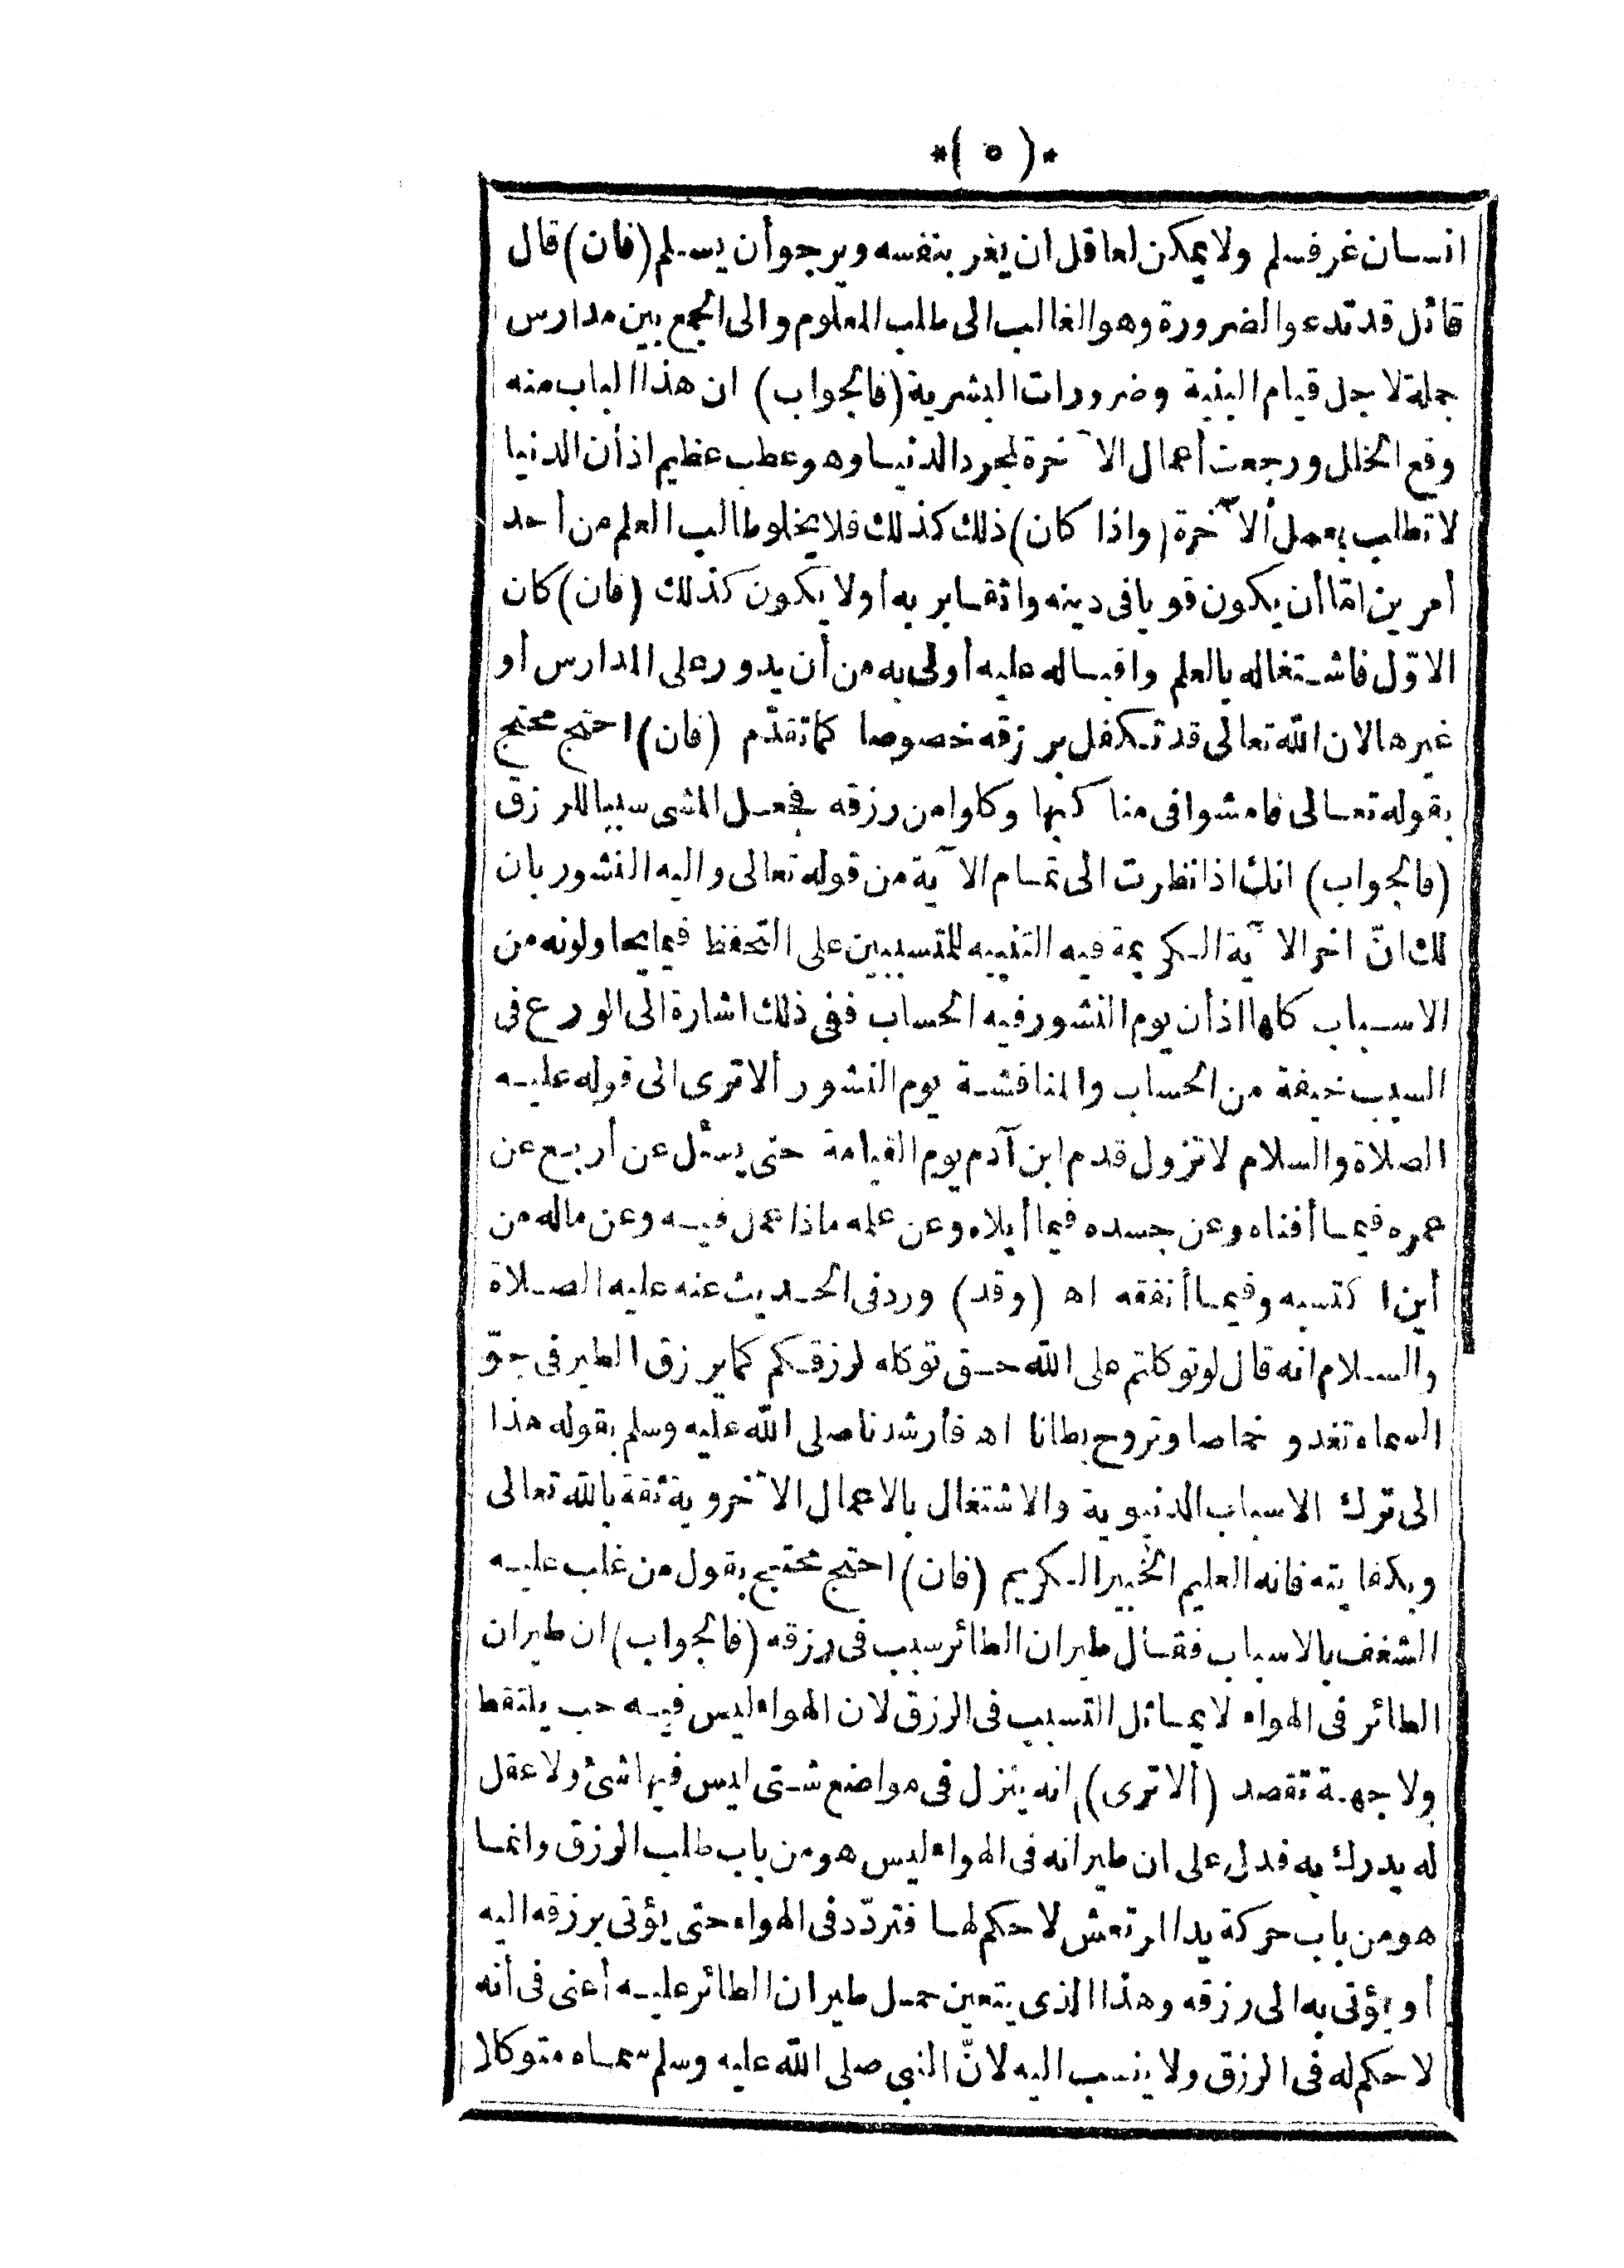 *( ٥ )*
انسان غرفسلم ولا يمكن لعاقل ان يغر بنفسه ويرجو أن يسلم (فان) قال
قائل قد تدعو الضرورة وهو الغالب الى طلب المعلوم والى الجمع بين مدارس
جملة لاجل قيام البنية وضرورات البشرية (فالجواب) ان هذا الباب منه
وقع الخلل ورجعت أعمال الآخرة لمجرد الدنيا وهو عطب عظيم اذ أن الدنيا
لا تطلب بعمل ألآخرة (واذا كان) ذلك كذلك فلا يخلو طالب العلم من أحد
أمرين امّا أن يكون قويا فى دينه واثقا بربه أو لا يكون كذلك (فان) كان
الاوّل فاشتغاله بالعلم واقباله عليه أولى به من أن يدور على المدارس أو
غيرها لان الله تعالى قد تكفل برزقه خصوصا كما تقدّم (فان) احتج محتج
بقوله تعالى فامشوا فى مناكبها وكلوا من رزقه فجعل المشى سببا للرزق
(فالجواب) انك اذا نظرت الى تمام الآية من قوله تعالى واليه النشور بان
لك انّ اخر الآية الكريمة فيه التنبيه للمتسببين على التحفظ فيما يحاولونه من
الاسباب كلها اذ أن يوم النشور فيه الحساب ففى ذلك اشارة الى الورع فى
السبب خيفة من الحساب والمنافشة يوم النشور ألا ترى الى قوله عليه
الصلاة والسلام لا تزول قدم ابن آدم يوم القيامة حتى يسئل عن أربع عن
عمره فيما أفناه وعن جسده فيما أبلاه وعن علمه ماذا عمل فيه وعن ماله من
أين اكتسبه وفيما أنفقه اه (وقد) ورد فى الحديث عنه عليه الصلاة
والسلام انه قال لو توكلتم على الله حق توكله لرزقكم كما يرزق الطير فى جوّ
السماء تغدو خماصا وتروح بطانا اه فأرشدنا صلى الله عليه وسلم بقوله هذا
الى ترك الاسباب الدنيوية والاشتغال بالاعمال الآخروية ثقة بالله تعالى
وبكفايته فانه العليم الخبير الكريم (فان) احتج محتج بقول من غلب عليه
الشغف بالاسباب فقال طيران الطائر سبب فى رزقه (فالجواب) ان طيران
الطائر فى الهواء لا يماثل التسبب فى الرزق لان الهواء ليس فيه حب يلتقط
ولا جهة تقصد (ألا ترى) انه ينزل فى مواضع شتى ليس فيها شئ ولا عقل
له يدرك به فدل على ان طيرانه فى الهواء ليس هو من باب طلب الرزق وانما
هو من باب حركة يد المرتعش لا حكم لها فتردّد فى الهواء حتى يؤتى برزقه اليه
أو يؤتى به الى رزقه وهذا الذى يتعين حمل طيران الطائر عليه أعنى فى أنه
لا حكم له فى الرزق ولا ينسب اليه لانّ النبى صلى الله عليه وسلم سماه متوكلا